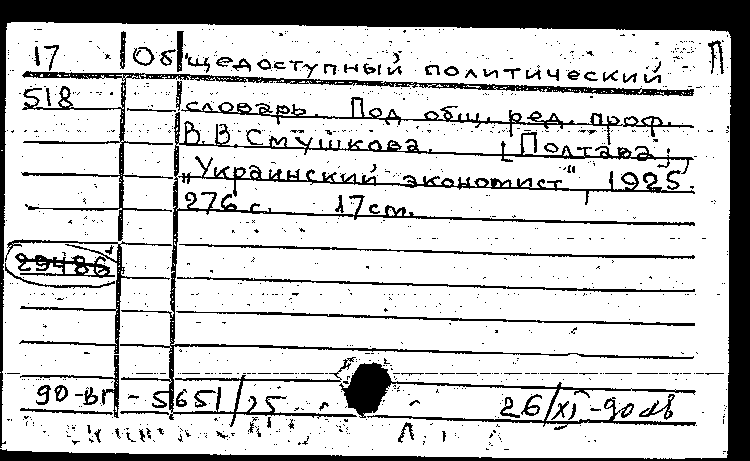 17 Общедоступный политический П
518 словарь. Под общ. ред. проф.
В. В. Смушкова. [Полтава],
„Украинский экономист", 1925.
276 с. 17 cm.
29486
90-ВГ - 5651/25 26/XI-90